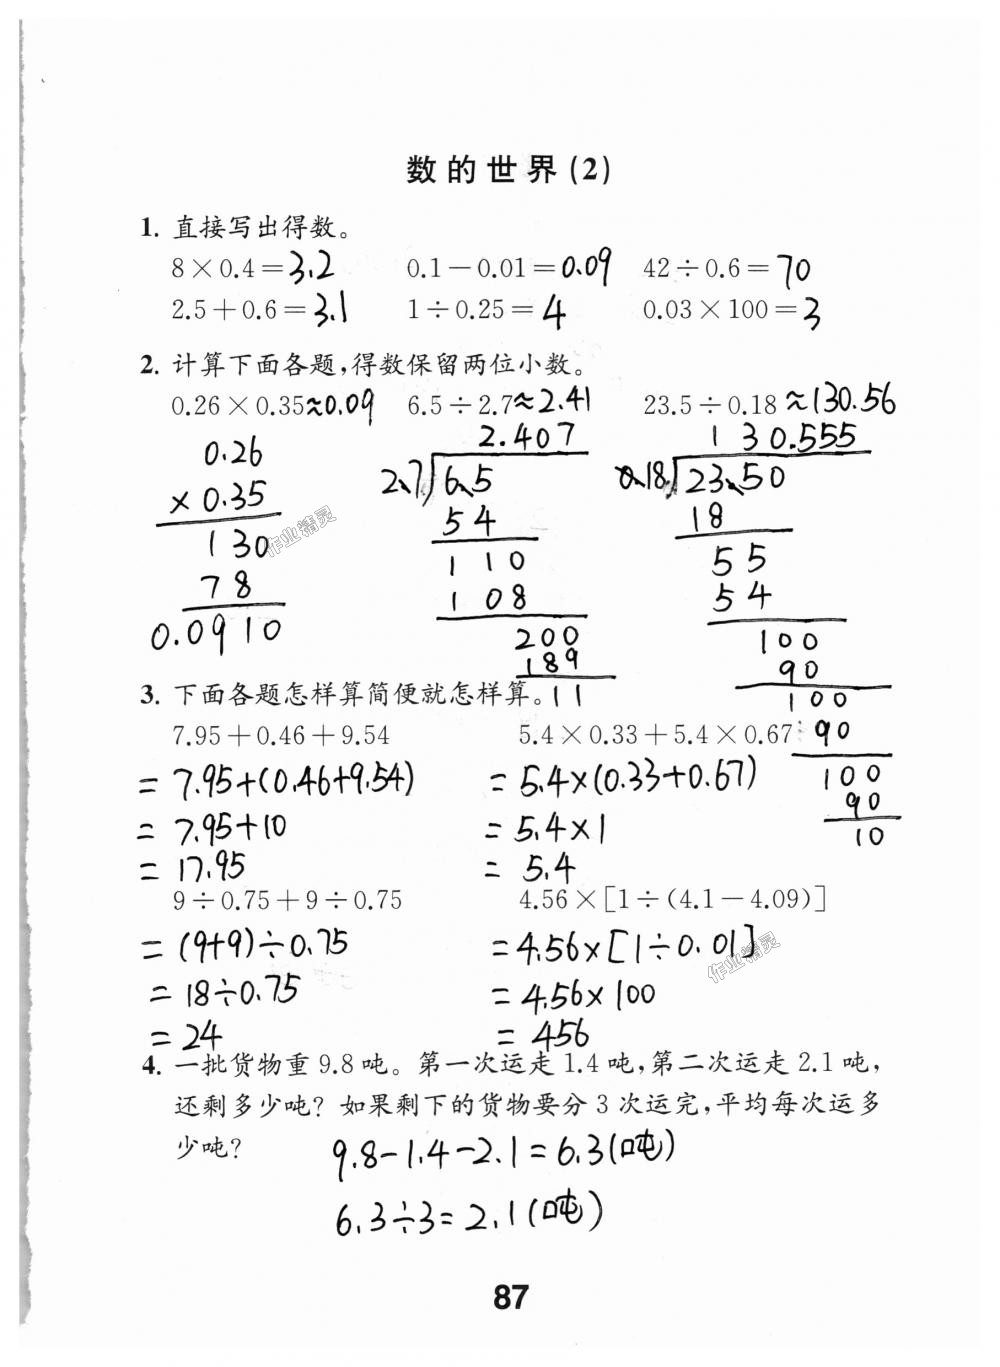 数的世界(2)
1. 直接写出得数。
8×0.4=3.2 0.1-0.01=0.09 42÷0.6=70
2.5+0.6=3.1 1÷0.25=4 0.03×100=3
2. 计算下面各题,得数保留两位小数。
0.26×0.35≈0.09 6.5÷2.7≈2.41 23.5÷0.18≈130.56
0.26
×0.35
130
78
0.0910
2.407
2.7)6.5
54
110
108
200
189
11
130.555
0.18)23.50
18
55
54
100
90
100
90
100
90
10
作业精灵
3. 下面各题怎样算简便就怎样算。
7.95+0.46+9.54 5.4×0.33+5.4×0.67
=7.95+(0.46+9.54) =5.4×(0.33+0.67)
=7.95+10 =5.4×1
=17.95 =5.4
9÷0.75+9÷0.75 4.56×[1÷(4.1-4.09)]
=(9+9)÷0.75 =4.56×[1÷0.01]
=18÷0.75 =4.56×100
=24 =456
作业精灵
4. 一批货物重9.8吨。第一次运走1.4吨,第二次运走2.1吨,
还剩多少吨?如果剩下的货物要分3次运完,平均每次运多
少吨?
9.8-1.4-2.1=6.3(吨)
6.3÷3=2.1(吨)
87